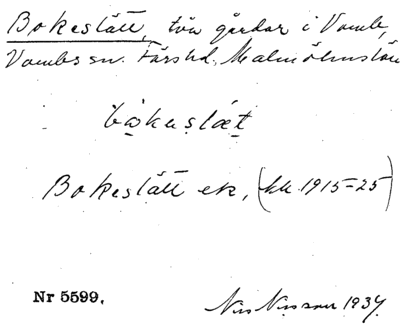 Bokeslätt, två gårdar i Vomb,
Vombs sn. Färs hd, Malmöhus län
bo̱kuslæt
Bokeslätt ek, (kk 1915=25)
Nr 5599. Nils Nilsson 1934.